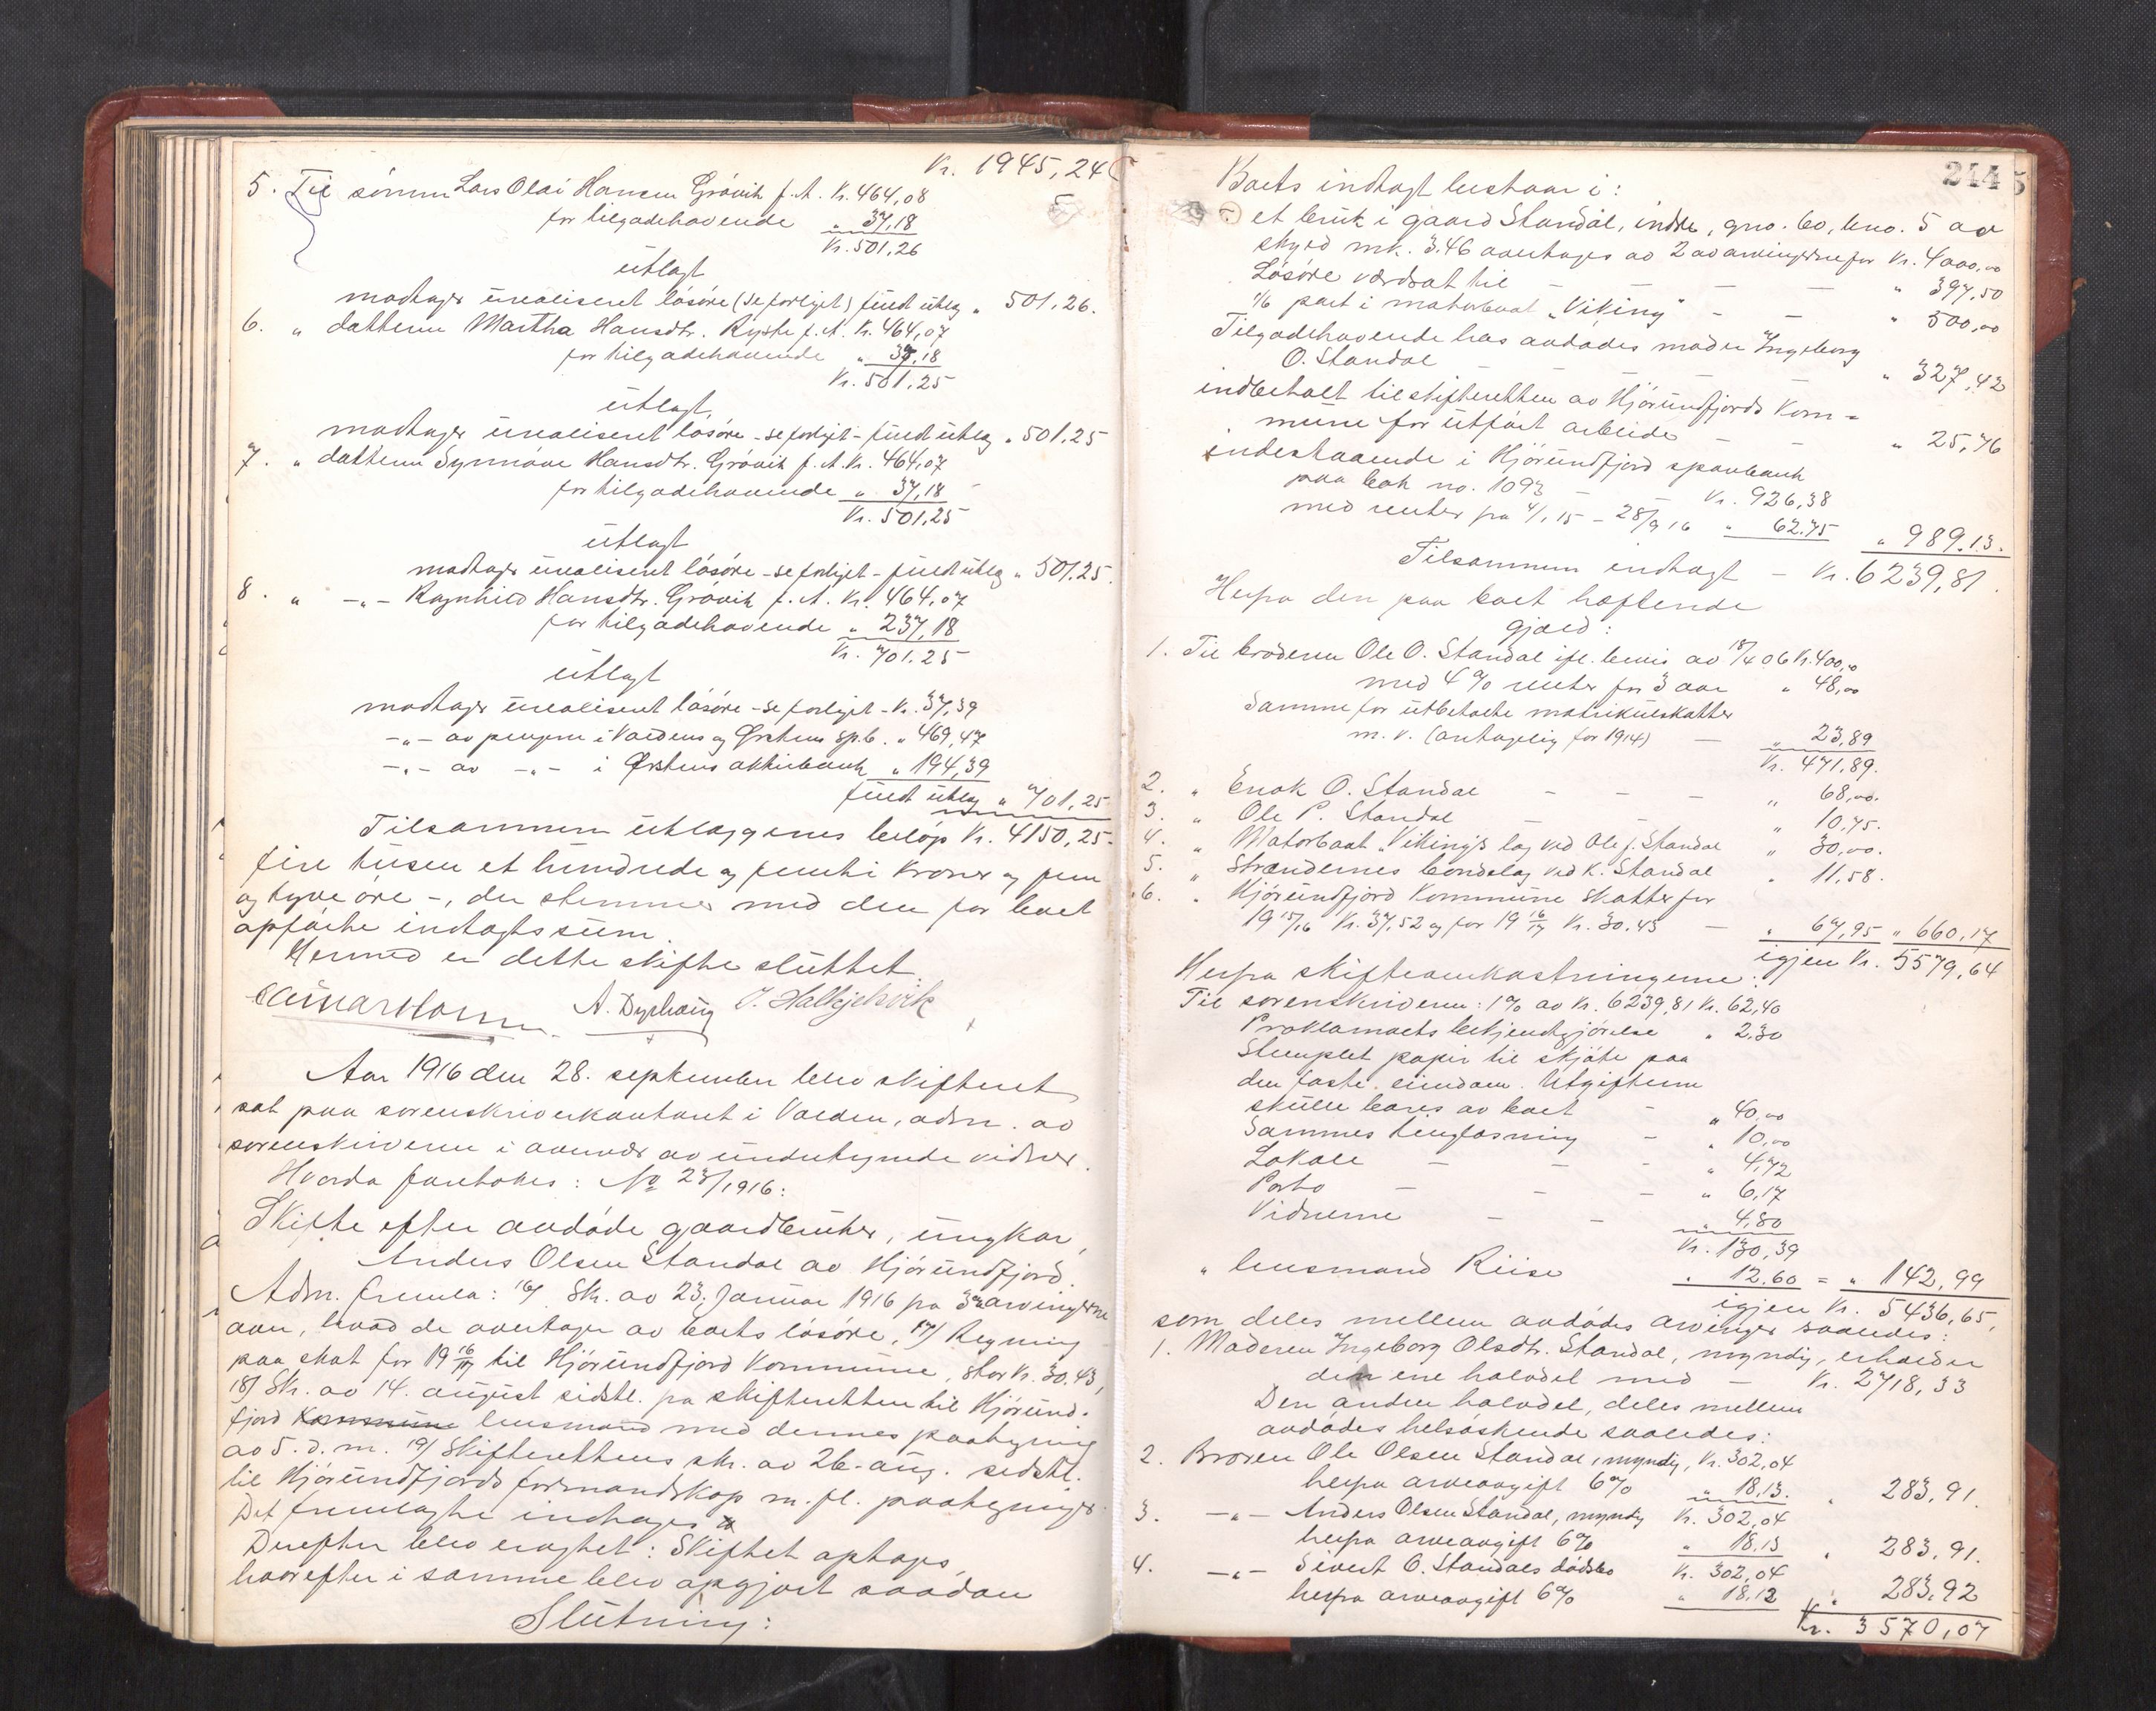 Kr. 1945,24
5. Til sönnen Lars Olai Hansen Grövik f. A. Kr. 464,08
for tilgodehavende " 37,18
Kr. 501,26
utlagt
modtager urealiseret lösöre (se forliget) fuldt utlæg " 501,26.
6. " datteren Martha Hansdtr. Ryste f. A. Kr. 464,07
for tilgodehavende " 37,18
Kr. 501,25
utlagt,
modtager urealiseret lösöre - se forliget - fuldt utlæg " 501,25
7. " datteren Synnöve Hansdtr. Grövik f. A. Kr. 464,07
for tilgodehavende " 37,18
Kr. 501,25
utlagt
modtager urealiseret lösöre - se forliget - fuldt utlæg " 501,25.
8. " -"- Ragnhild Hansdtr. Grövik f. A. Kr. 464,07
for tilgodehavende " 237,18
Kr. 701,25
utlagt
modtager urealiseret lösöre - se forliget - Kr. 37,39
-"- av pengene i Voldens og Örstens spb. " 469,47
-"- av -"- i Örstens aktiebank " 194,39
fuldt utlæg " 701,25
Tilsammen utlæggenes belöp Kr. 4150,25 -
fire tusen et hundrede og femti kroner og fem
og tyve öre -, der stemmer med den for boet
opförte indtægtssum.
Hermed er dette skifte sluttet.
A. Dyrhaug J. Halkjelsvik
Aar 1916 den 28. september blev skifteret
sat paa sorenskriverkontoret i Volden, adm. av
sorenskriveren i overvær av undertegnede vidner.
Hvorda foretokes: No 23/1916:
Skifte efter avdöde gaardbruker, ungkar,
Anders Olsen Standal av Hjörundfjord.
Adm. fremla: 16/ Skr. av 23. Januar 1916 fra 3 arvingerne
om, hvad de overtager av boets lösöre, 17/ Regning
paa skat for 19 16/17 til Hjörundfjord Kommune, stor Kr. 30.43,
18/ Skr. av 14. august sidstl. fra skifteretten til Hjörund-
fjord Kommune lensmand med dennes paategning
av 5. d. m. 19/ Skifterettens skr. av 26. aug. sidstl.
til Hjörundfjords formandskap m. fl. paategninger.
Det fremlagte indtages
Derefter blev eragtet: Skiftet optages,
hvorefter i samme blev opgjort saadan
Slutning:
244
Boets indtægt bestaar i:
et bruk i gaard Standal, indre, gno. 60, bno. 5 av
skyld mk. 3.46 overtages av 2 av arvingerne for Kr. 4000,00
Lösöre værdsat til - - - " 397,50
1/6 part i motorbaat "Viking" - - " 500,00
Tilgodehavende hos avdödes moder Ingeborg
O. Standal - - - " 327,42
indbetalt til skifteretten av Hjörundfjords Kom-
mune for utfört arbeide - - " 25,76
indestaaende i Hjörundfjord sparebank
paa bok no. 1093 - Kr. 926,38
med renter fra 1/1 15 - 28/9 16 " 62.75 " 989.13.
Tilsammen indtægt - Kr. 6239,81.
Herfra den paa boet hæftende
gjæld:
1. Til broderen Ole O. Standal ifl. bevis av 18/4 06 Kr. 400,00
med 4% renter for 3 aar " 48,00
Samme for utbetalte matrikulskatter
m. v. (antagelig for 1914) - " 23,89
Kr. 471,89.
2. " Enok O. Standal - - - " 68,00.
3. " Ole P. Standal - " 10,75.
4. " Motorbaat "Viking's lag ved Ole J. Standal " 30,00.
5. " Strændernes bondelag ved K. Standal " 11,58.
6. " Hjörundfjord Kommune skatter for
19 15/16 Kr. 37,52 og for 19 16/17 Kr. 30.43 - " 67,95 " 660,17
igjen Kr. 5579,64
Herfra skifteomkostningerne:
Til sorenskriveren: 1% av Kr. 6239,81 Kr. 62,40
Proklamaets bekjendtgjörelse " 2,30
Stemplet papir til skjöte paa
den faste eiendom. Utgifterne
skulle bæres av boet - " 40,00
Sammes tinglæsning - " 10,00
Lokale - - - " 4,72
Porto - - - " 6,17
Vidnerne - - " 4,80
Kr. 130,39
" lensmand Riise " 12.60 = " 142,99
igjen Kr. 5436,65,
som deles mellem avdödes arvinger saaledes:
1. Moderen Ingeborg Olsdtr. Standal, myndig, erholder
den ene halvdel med - Kr. 2718,33
Den anden halvdel, deles mellem
avdödes helsöskende saaledes:
2. Broren Ole Olsen Standal, myndig, Kr. 302,04
herfra arveavgift 6% " 18.13. " 283,91.
3. -"- Anders Olsen Standal, myndig Kr. 302,04
herfra arveavgift 6% " 18,13 " 283,91.
4. -"- Sivert O. Standals dödsbo Kr. 302,04
herfra arveavgift 6% " 18.12 " 283,92
Kr. 3570,07